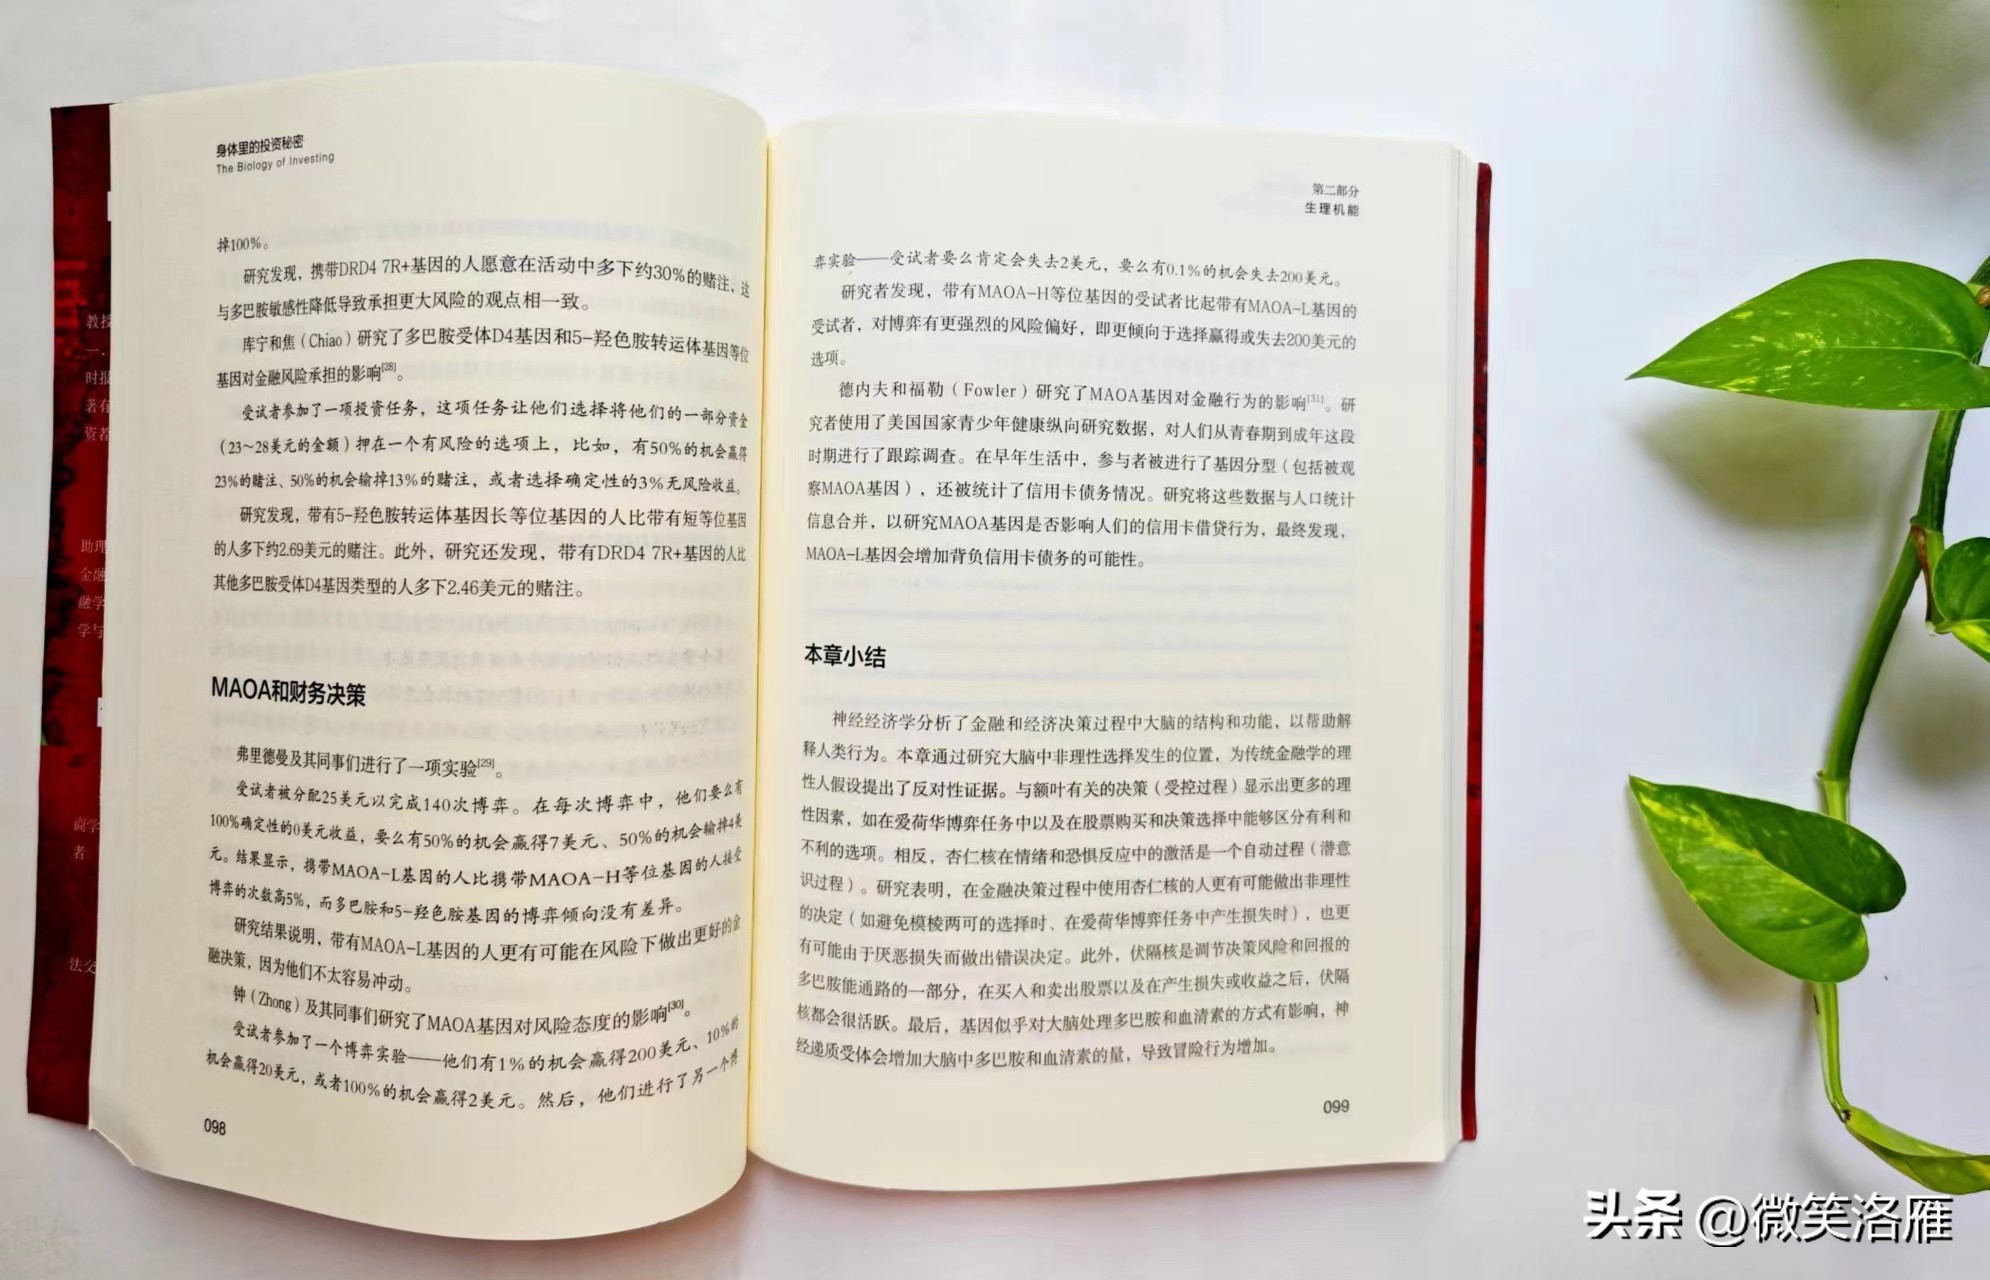 身体里的投资秘密
The Biology of Investing
掉100%。
研究发现，携带DRD4 7R+基因的人愿意在活动中多下约30%的赌注，这
与多巴胺敏感性降低导致承担更大风险的观点相一致。
库宁和焦（Chiao）研究了多巴胺受体D4基因和5-羟色胺转运体基因等位
基因对金融风险承担的影响[28]。
受试者参加了一项投资任务，这项任务让他们选择将他们的一部分资金
（23~28美元的金额）押在一个有风险的选项上，比如，有50%的机会赢得
23%的赌注、50%的机会输掉13%的赌注，或者选择确定性的3%无风险收益。
研究发现，带有5-羟色胺转运体基因长等位基因的人比带有短等位基因
的人多下约2.69美元的赌注。此外，研究还发现，带有DRD4 7R+基因的人比
其他多巴胺受体D4基因类型的人多下2.46美元的赌注。
MAOA和财务决策
弗里德曼及其同事们进行了一项实验[29]。
受试者被分配25美元以完成140次博弈。在每次博弈中，他们要么有
100%确定性的0美元收益，要么有50%的机会赢得7美元、50%的机会输掉4美
元。结果显示，携带MAOA-L基因的人比携带MAOA-H等位基因的人接受
博弈的次数高5%，而多巴胺和5-羟色胺基因的博弈倾向没有差异。
研究结果说明，带有MAOA-L基因的人更有可能在风险下做出更好的金
融决策，因为他们不太容易冲动。
钟（Zhong）及其同事们研究了MAOA基因对风险态度的影响[30]。
受试者参加了一个博弈实验——他们有1%的机会赢得200美元、10%的
机会赢得20美元，或者100%的机会赢得2美元。然后，他们进行了另一个博
098
第二部分
生理机能
弈实验——受试者要么肯定会失去2美元，要么有0.1%的机会失去200美元。
研究者发现，带有MAOA-H等位基因的受试者比起带有MAOA-L基因的
受试者，对博弈有更强烈的风险偏好，即更倾向于选择赢得或失去200美元的
选项。
德内夫和福勒（Fowler）研究了MAOA基因对金融行为的影响[31]。研
究者使用了美国国家青少年健康纵向研究数据，对人们从青春期到成年这段
时期进行了跟踪调查。在早年生活中，参与者被进行了基因分型（包括被观
察MAOA基因），还被统计了信用卡债务情况。研究将这些数据与人口统计
信息合并，以研究MAOA基因是否影响人们的信用卡借贷行为，最终发现，
MAOA-L基因会增加背负信用卡债务的可能性。
本章小结
神经经济学分析了金融和经济决策过程中大脑的结构和功能，以帮助解
释人类行为。本章通过研究大脑中非理性选择发生的位置，为传统金融学的理
性人假设提出了反对性证据。与额叶有关的决策（受控过程）显示出更多的理
性因素，如在爱荷华博弈任务中以及在股票购买和决策选择中能够区分有利和
不利的选项。相反，杏仁核在情绪和恐惧反应中的激活是一个自动过程（潜意
识过程）。研究表明，在金融决策过程中使用杏仁核的人更有可能做出非理性
的决定（如避免模棱两可的选择时、在爱荷华博弈任务中产生损失时），也更
有可能由于厌恶损失而做出错误决定。此外，伏隔核是调节决策风险和回报的
多巴胺能通路的一部分，在买入和卖出股票以及在产生损失或收益之后，伏隔
核都会很活跃。最后，基因似乎对大脑处理多巴胺和血清素的方式有影响，神
经递质受体会增加大脑中多巴胺和血清素的量，导致冒险行为增加。
099
教授
时报
著有
资者
助理
金融
融学
学与
商学
者
法交
头条 @微笑洛雁